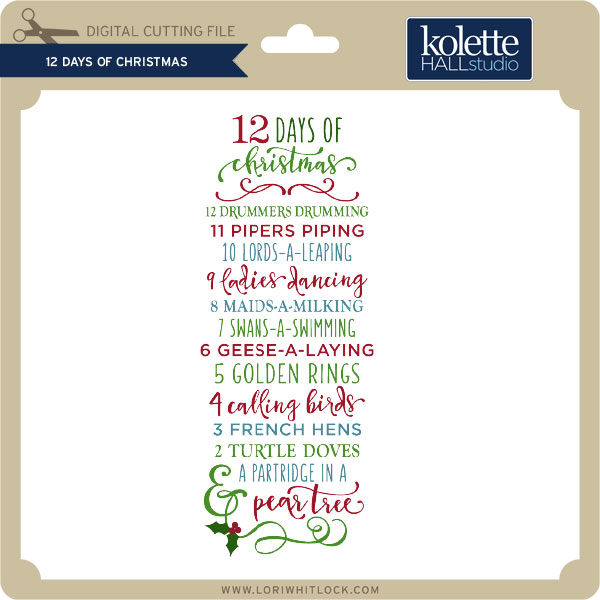 DIGITAL CUTTING FILE
12 DAYS OF CHRISTMAS
kolette
HALLstudio
12 DAYS OF
christmas
12 DRUMMERS DRUMMING
11 PIPERS PIPING
10 LORDS-A-LEAPING
9 ladies dancing
8 MAIDS-A-MILKING
7 SWANS-A-SWIMMING
6 GEESE-A-LAYING
5 GOLDEN RINGS
4 calling birds
3 FRENCH HENS
2 TURTLE DOVES
& A PARTRIDGE IN A
pear tree
WWW.LORIWHITLOCK.COM